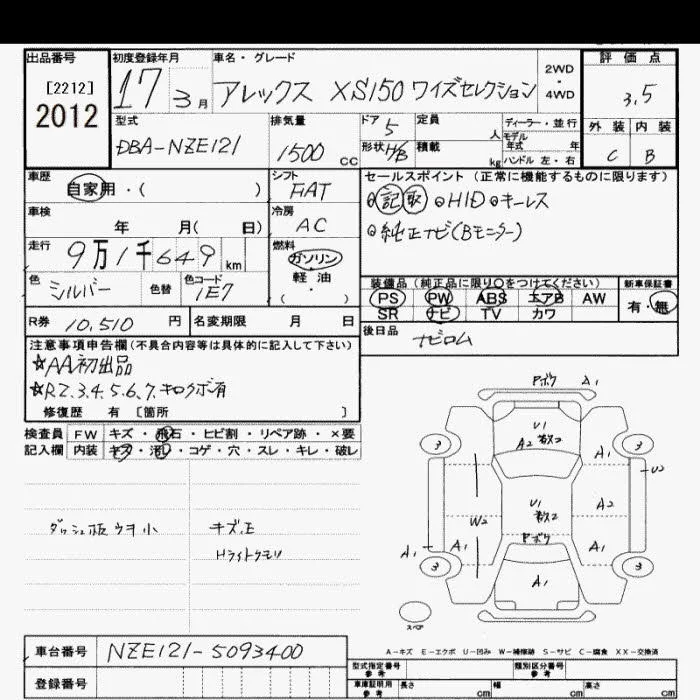 出品番号 初度登録年月 車名・グレード 2WD・4WD 評価点
[2212] 2012 17 3月 アレックス XS150 ワイズセレクション 3.5
型式 排気量 ドア 5 定員 人 ディーラー・並行 外装 内装
DBA-NZE121 1500 CC 形状 H/B 積載 kg モデル年式 年 ハンドル 左・右 C B
車歴 シフト セールスポイント (正常に機能するものに限ります)
自家用・( ) FAT 記 取 HID キーレス
車検 冷房 純正ナビ(Bモニター)
年 月( 日) AC
走行 燃料
9万1千649 km ガソリン 軽油 ( ・ )
色 色替 色コード 装備品 (純正品に限り○をつけてください) 新車保証書
シルバー 1E7 PS PW ABS エアB AW 有・無
SR ナビ TV カワ
R券 10,510 円 名変期限 月 日 後日品 ナビロム
注意事項申告欄(不具合内容等は具体的に記入して下さい)
☆AA初出品
☆R2.3.4.5.6.7.キロクボ有
修復歴 有 [箇所 ]
検査員 FW キズ・飛石・ヒビ割・リペア跡・×要
記入欄 内装 キズ・汚レ・コゲ・穴・スレ・キレ・破レ
ダッシュ板ウキ小 キズ、E
Hライトクモリ
Pボウ A1
U1
A2
3 3
A1
U2
U1
A2
W2
Pボウ
A1 A1 A1
3 3
A1
スペア
A-キズ E-エクボ U-凹み W-補修跡 S-サビ C-腐食 XX-交換済
車台番号 NZE121-5093400
登録番号
型式指定番号 参考 類別区分番号 参考
車庫証明用 参考 長さ cm 幅 cm 高さ cm